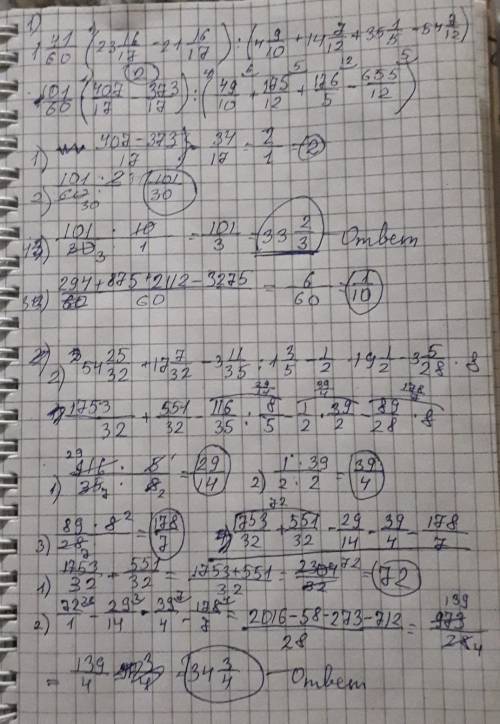 1)
1 41/60 · (23 16/17 − 21 16/17) : (4 9/10 + 14 7/12 + 35 1/5 − 54 7/12)
101/60 (407/17 − 373/17) : (49/10 + 175/12 + 176/5 − 655/12)
1) 407 − 373/17 = 34/17 = 2/1 = 2
2) 101 · 2/60 30 = 101/30
101/30 3 · 10/1 = 101/3 = 33 2/3 — Ответ
294 + 875 + 2112 − 3275/60 = 6/60 = 1/10
2) 54 25/32 + 17 7/32 − 3 11/35 : 1 3/5 − 1/2 · 19 1/2 − 3 5/28 · 8
1753/32 + 551/32 − 116/35 : 8/5 − 1/2 · 39/2 − 89/28 · 8
1) 29 116 · 5 1/35 7 · 8 2 = 29/14 2) 1 · 39/2 · 2 = 39/4
3) 89 · 8 2/28 7 = 178/7 1753/32 + 551/32 − 29/14 − 39/4 − 178/7
1) 1753/32 + 551/32 = 1753 + 551/32 = 2304/32 72 = 72
2) 72 28/1 − 29 2/14 − 39 7/4 − 178 4/7 = 2016 − 58 − 273 − 712/28 = 973 139/28 4
= 139/4 = 34 3/4 — Ответ